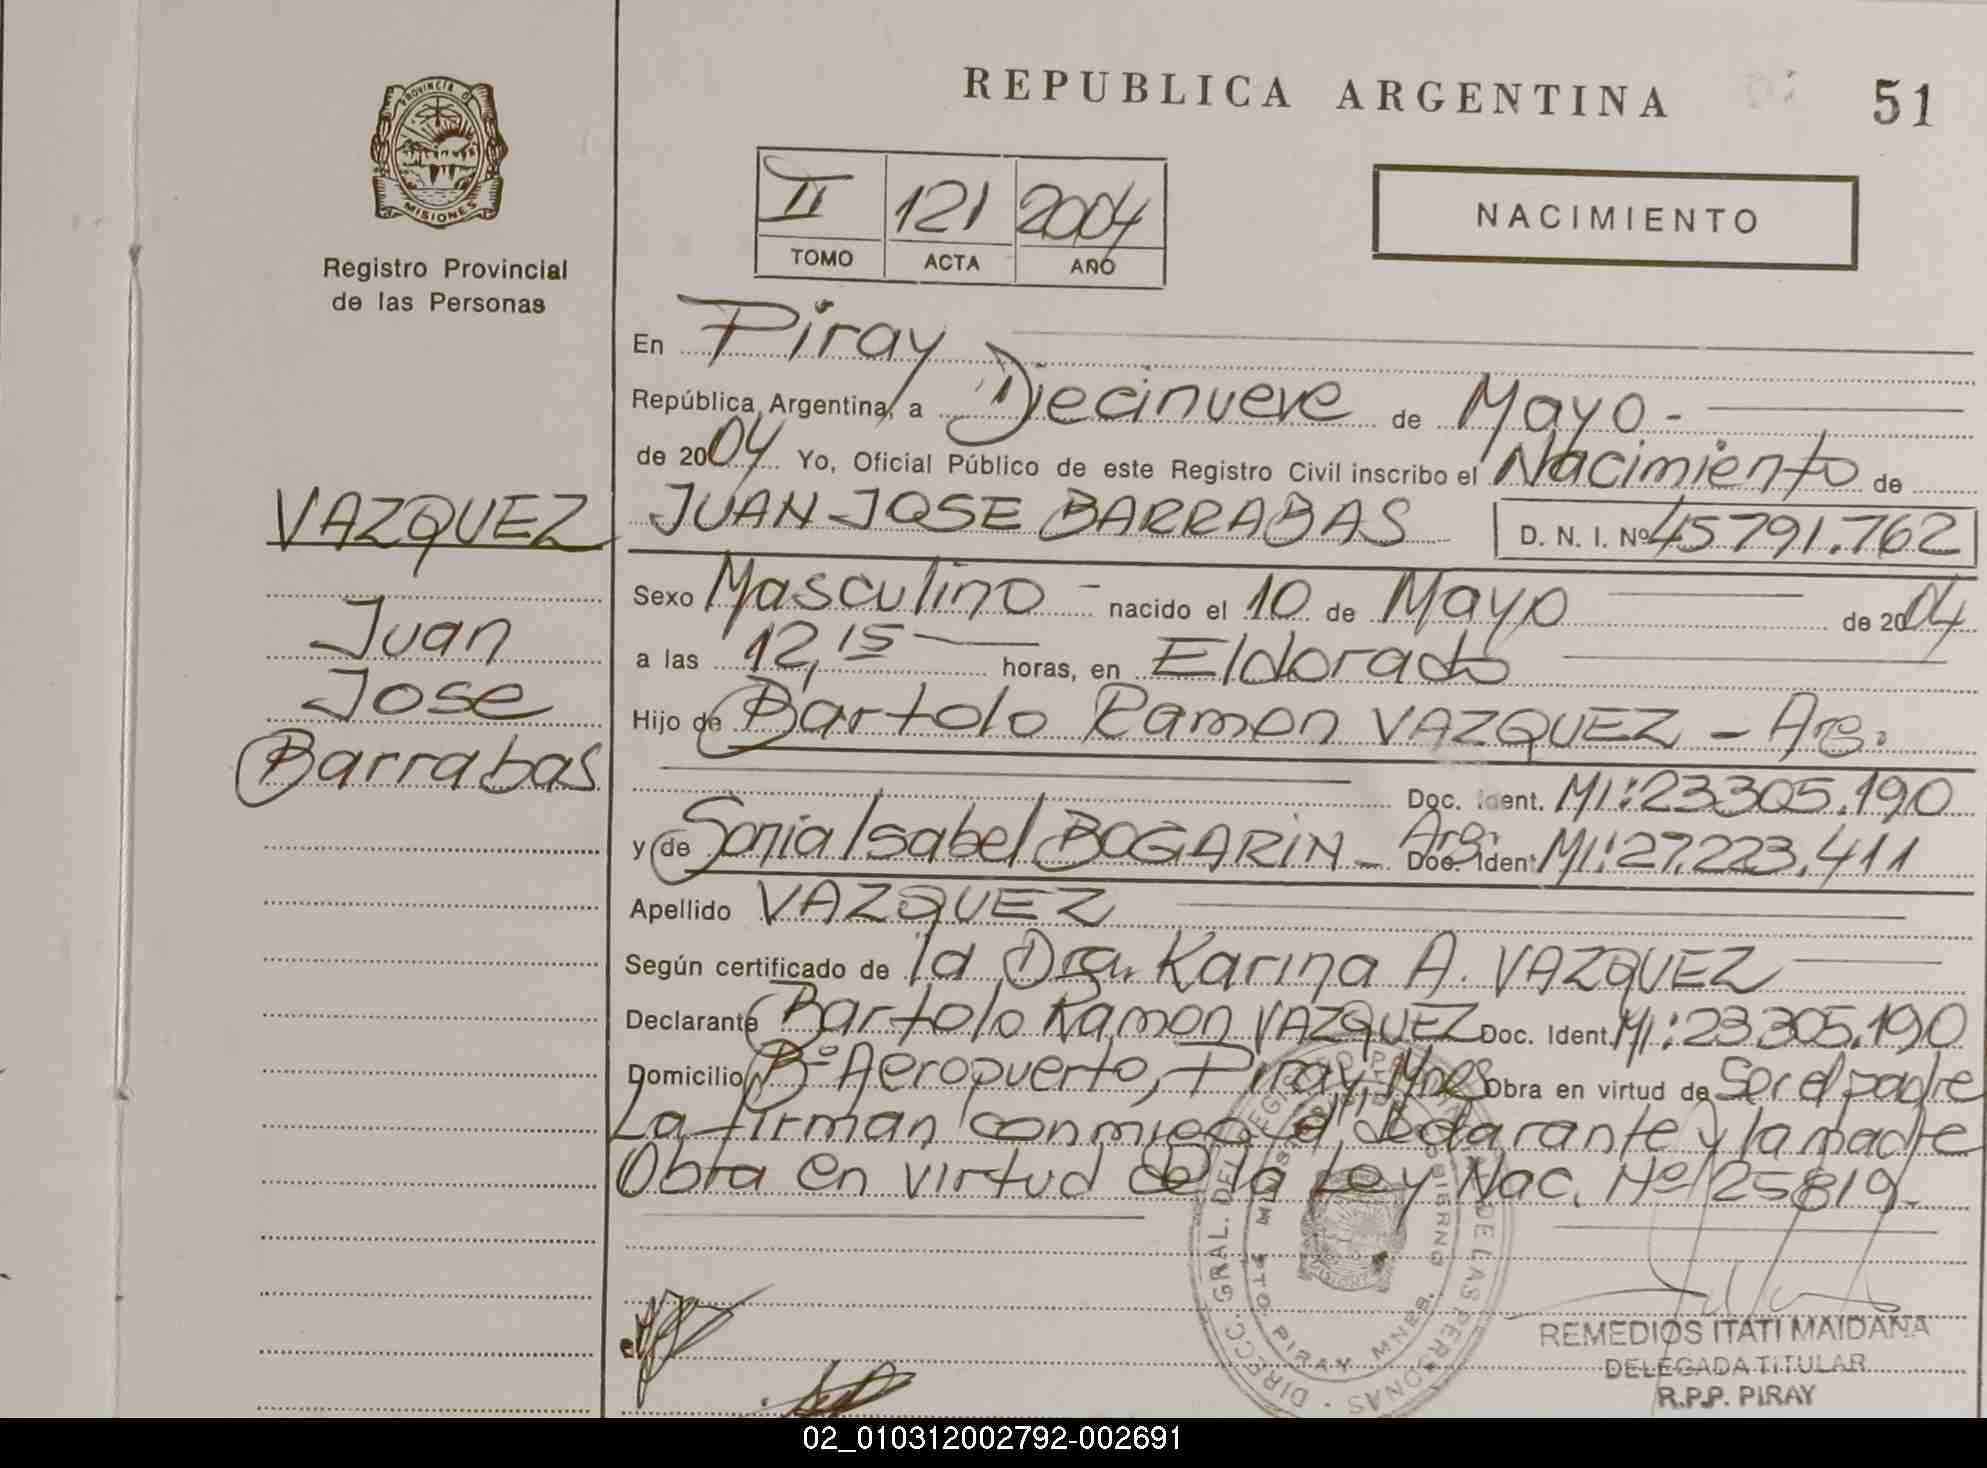 REPUBLICA ARGENTINA 51
PROVINCIA DE
MISIONES
Registro Provincial
de las Personas
II 121 2004
TOMO ACTA AÑO
NACIMIENTO
En Piray
República Argentina, a Diecinueve de Mayo -
de 2004 Yo, Oficial Público de este Registro Civil inscribo el Nacimiento de
VAZQUEZ
Juan
Jose
Barrabas
JUAN JOSE BARRABAS D. N. I. Nº 45791.762
Sexo Masculino - nacido el 10 de Mayo de 2004
a las 12,15 horas, en Eldorado
Hijo de Bartolo Ramon VAZQUEZ - Arg.
Doc. Ident. MI: 23305.190
y de Sonia Isabel BOGARIN - Arg. Doc. Ident MI: 27.223.411
Apellido VAZQUEZ
Según certificado de la Dra. Karina A. VAZQUEZ
Declarante Bartolo Ramon VAZQUEZ Doc. Ident. MI: 23.305.190
Domicilio Bº Aeropuerto, Piray, Mnes Obra en virtud de Ser el padre
La firman conmigo el declarante y la madre
Obra en virtud de la Ley Nac. Nº 25819.
DIRECC. GRAL. DEL REGISTRO DE LAS PERSONAS
PIRAY MNES.
REMEDIOS ITATI MAIDANA
DELEGADA TITULAR
R.P.P. PIRAY
02_010312002792-002691